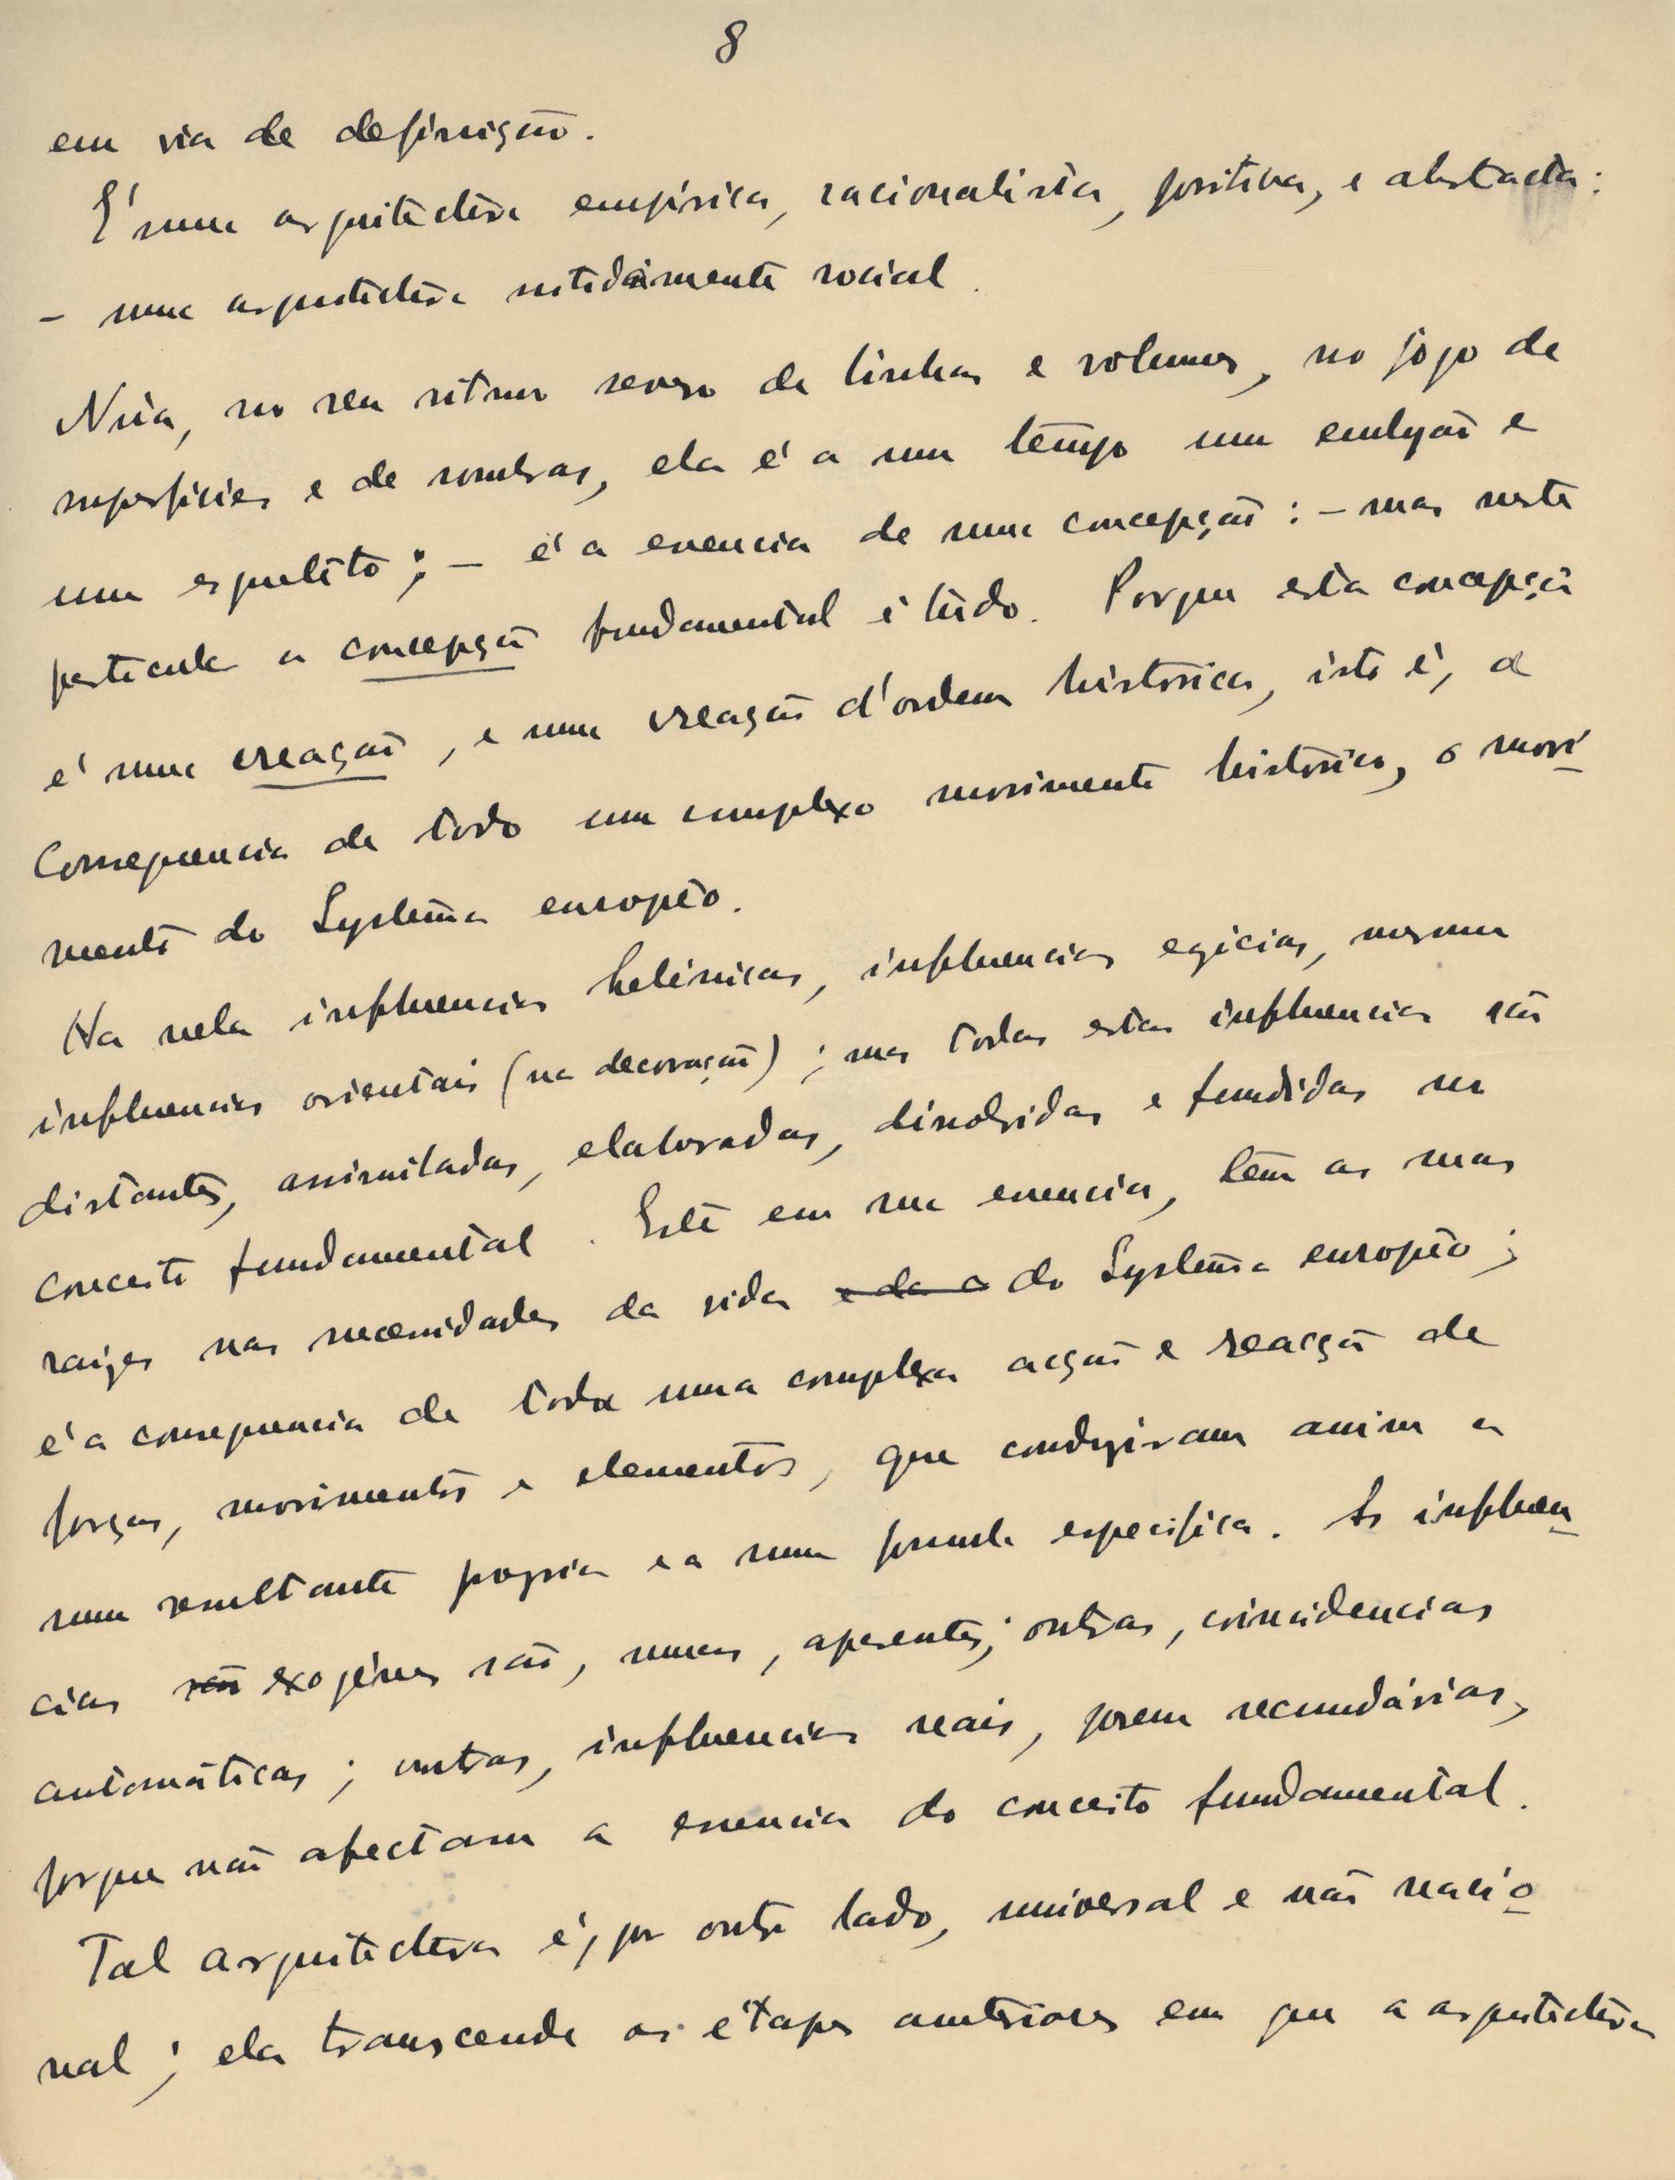 8
em via de definição.
É uma arquitectura empírica, racionalista, positiva, e abstracta:
- uma arquitectura nitidamente social.
Núa, no seu ritmo severo de linhas e volumes, no jogo de
superficies e de sombras, ela é a um tempo um e
um esqueléto; - é a essencia de uma concepção: - mas neste
particular a concepção fundamental é túdo. Porque esta concepção
é uma creação, e uma creação d'ordem historica, isto é, a
consequencia de todo um complexo movimento histórico, o movi
mento do Systema européo.
Ha nela influencias helénicas, influencias egícias, mesmo
influencias orientais (na decoração); mas todas estas influencias são
distantes, assimiladas, elaboradas, dissolvidas e fundidas no
conceito fundamental. Este em sua essencia, tem as suas
raizes nas necessidades da vida e da a do Systema européo;
é a consequencia de toda uma complexa acção e reacção de
forças, movimentos e elementos, que conduziram assim a
uma resultante propria e a uma formula especifica. As influen
cias são exogénas são, umas, aparentes; outras, coincidencias
automáticas; outras, influencias reais, porem secundárias,
porque não afectam a essencia do conceito fundamental.
Tal arquitectura é, por outro lado, universal e não nacio
nal; ela transcende as étapes anteriores em que a arquitectura